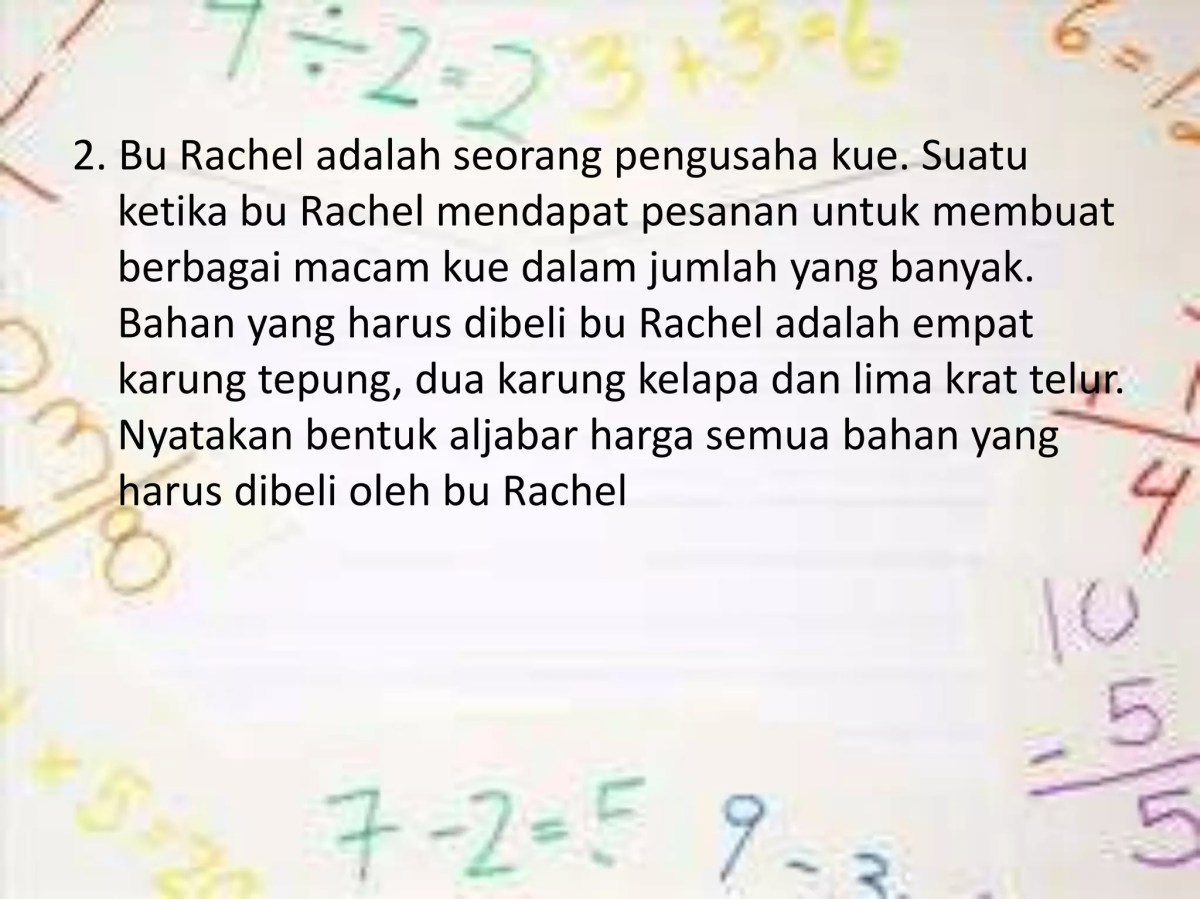 7 ÷ 2 = 2 3 + 3 = 6
6 =
2. Bu Rachel adalah seorang pengusaha kue. Suatu
ketika bu Rachel mendapat pesanan untuk membuat
berbagai macam kue dalam jumlah yang banyak.
Bahan yang harus dibeli bu Rachel adalah empat
karung tepung, dua karung kelapa dan lima krat telur.
Nyatakan bentuk aljabar harga semua bahan yang
harus dibeli oleh bu Rachel
3
8
4
10
- 5
5
+ 5 =
7 - 2 = 5
9 - 3